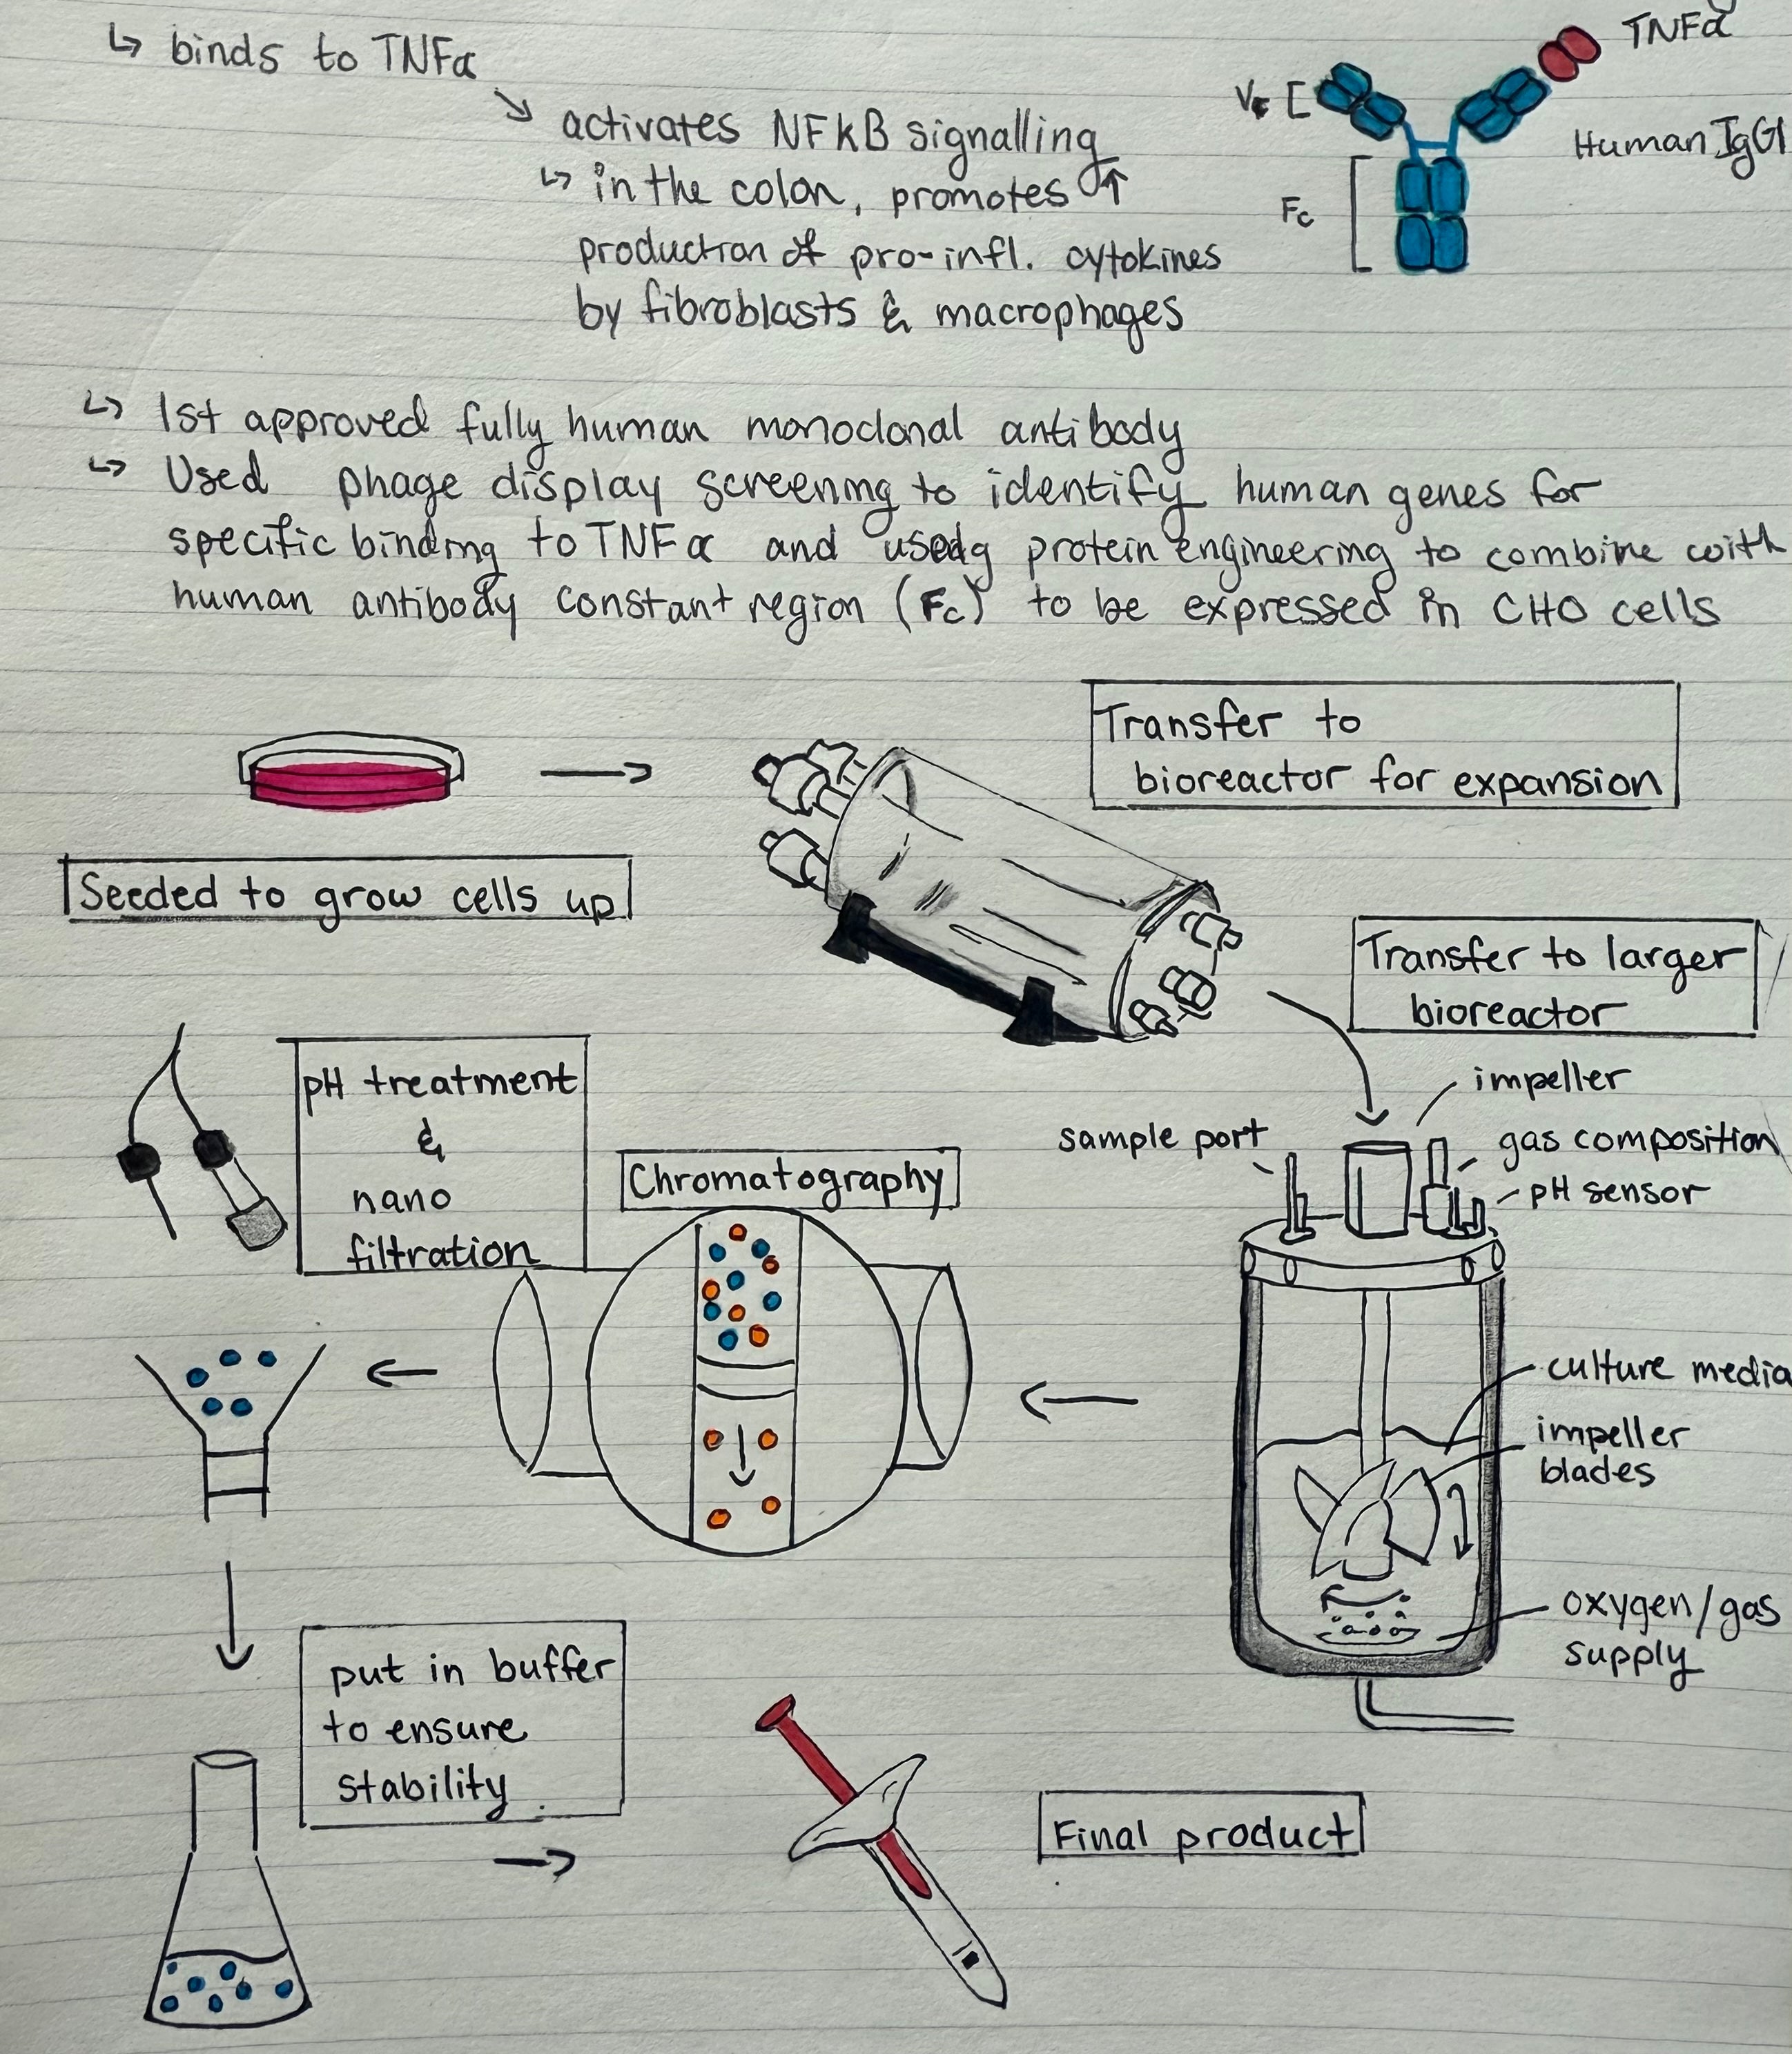 ↳ binds to TNFα
↘ activates NFkB signalling
↳ in the colon, promotes ↑
production of pro-infl. cytokines
by fibroblasts & macrophages
TNFα
Human IgG1
Fc
↳ 1st approved fully human monoclonal antibody
↳ Used phage display screening to identify human genes for
specific binding to TNFα and protein engineering to combine with
human antibody constant region (Fc) to be expressed in CHO cells
Seeded to grow cells up
Transfer to
bioreactor for expansion
Transfer to larger
bioreactor
impeller
sample port
gas composition
pH sensor
culture media
impeller
blades
oxygen/gas
supply
Chromatography
pH treatment
&
nano
filtration
put in buffer
to ensure
stability.
Final product